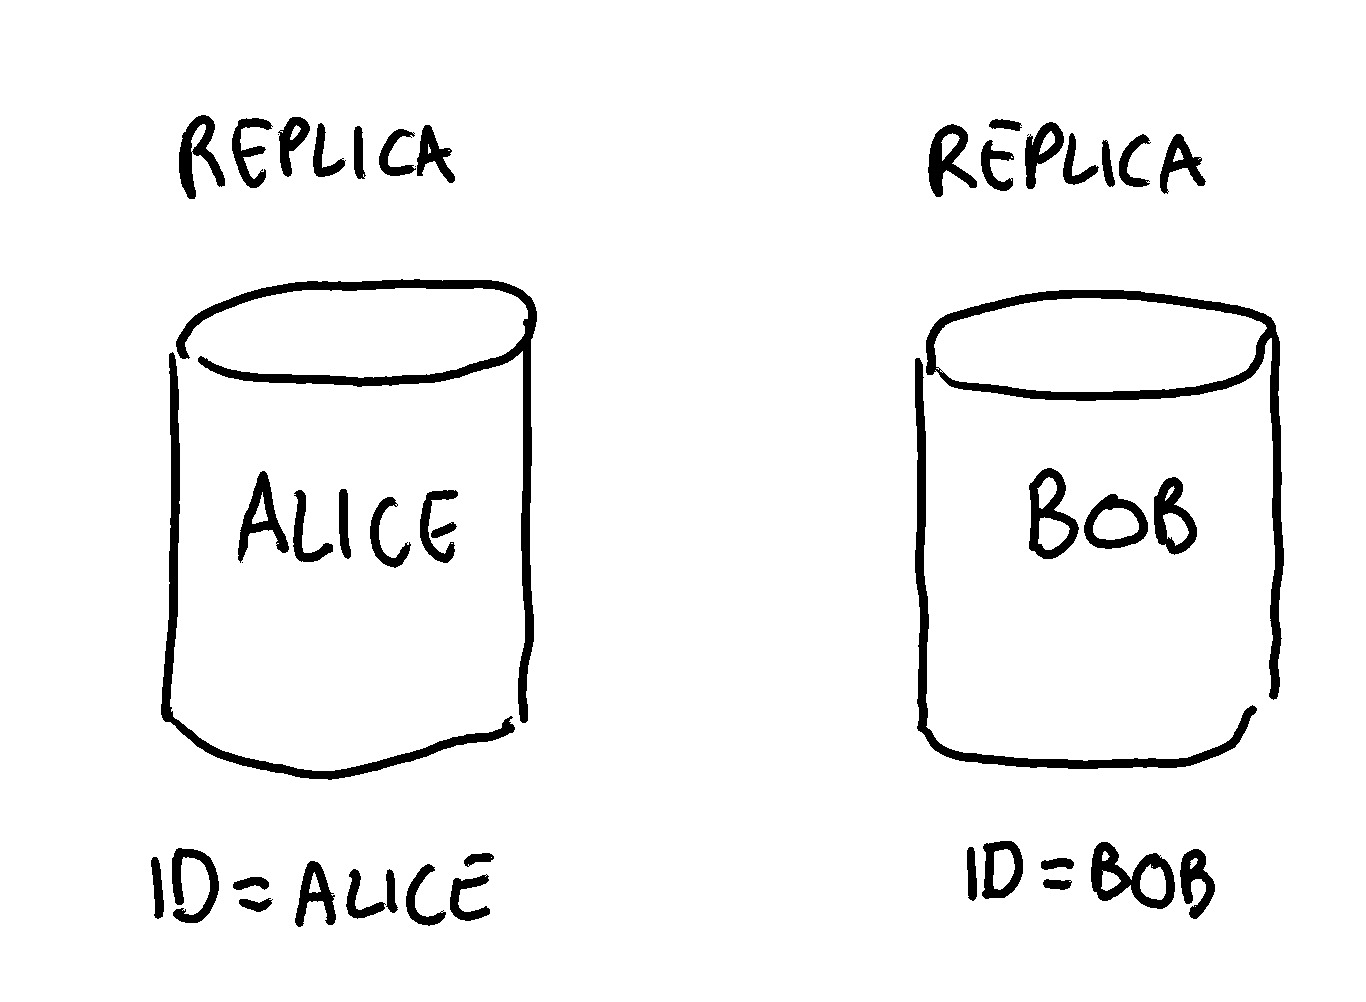 REPLICA
ALICE
ID=ALICE
REPLICA
BOB
ID=BOB